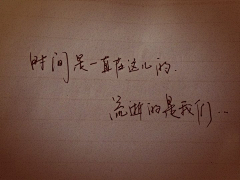 时间是一直在这儿的.
流逝的是我们...